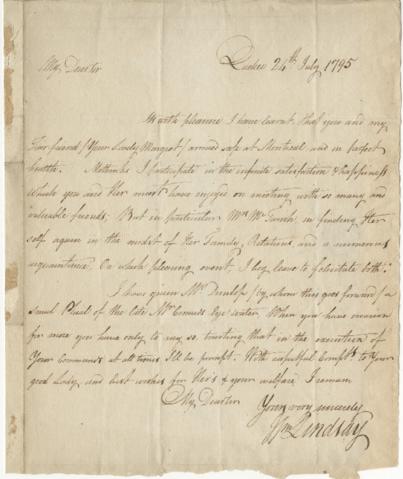 Quebec 24th July 1795
My Dear Sir
With pleasure I have learnt that you and my
Fair friend / Your Lovely Margot / arrived safe at Montreal and in perfect
health. Methinks I participate in the infinite satisfaction & happiness
which you and Her must have enjoyed on meeting with so many and
valuable friends. But in particular Mrs in finding Her
self again in the midst of Her Family, Relations and a numerous
acquaintance. On which pleasing event, I beg leave to felicitate both.
I have given Mr. Dunlop / by whom this goes forward / a
small Phial of the late Mr. Eye water. When you have occasion
for more you have only to say so, trusting that in the execution of
Your Commands at all times I'll be prompt. With respectful Compts. to Your
good Lady, and best wishes for Her's & your welfare I remain
My Dear Sir
Yours very sincerely
Wm Lindsay